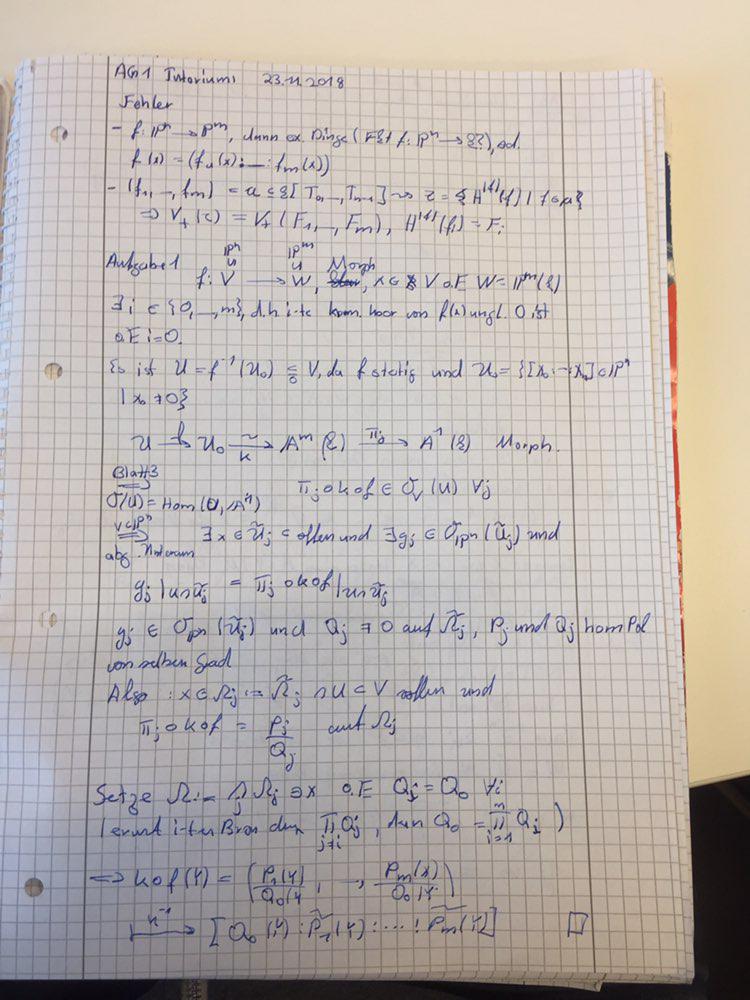 AG1 Tutorium 23.11.2018
Fehler
- f: ℙⁿ → ℙᵐ, dann ex. Dinge ( f: ℙⁿ → ),
f(x) = (f₀(x): — : fₘ(x))
- (f₁, —, fₘ) = a ⊆ k[T₀, —, Tₙ₋₁] ⇝ τ = {H⁽ᵈ⁾(f) | f ∈ a}
⇒ V₊(τ) = V₊(F₁, —, Fₘ), H⁽ᵈ⁾(fᵢ) = Fᵢ
ℙⁿ ℙᵐ
∪ ∪
Aufgabe 1 f: V → W, Morph, x ∈ V o.E W = ℙᵐ(k)
∃ i ∈ {0, —, m}, d.h i-te kom. von f(x) ungl. 0 ist
o.E i=0.
So ist U = f⁻¹(U₀) ⊆ₒ V, da f stetig und U₀ = {[x₀: ⋯ :xₙ] ∈ ℙⁿ
| x₀ ≠ 0}
U →f U₀ →~κ 𝔸ᵐ(k) →πⱼ 𝔸¹(k) Morph.
Blatt3
⇒ πⱼ∘κ∘f ∈ 𝒪ᵥ(U) ∀j
𝒪(U) = Hom(U, 𝔸¹)
V⊂ℙⁿ
⇒ ∃ x ∈ Ũⱼ ⊂ offen und ∃gⱼ ∈ 𝒪ℙⁿ(Ũⱼ) und
abg.
gⱼ|U∩Ũⱼ = πⱼ∘κ∘f|U∩Ũⱼ
gⱼ ∈ 𝒪ℙⁿ(Ũⱼ) und Qⱼ ≠ 0 auf Ω̃ⱼ, Pⱼ und Qⱼ hom Pol
von selben Grad
Also: x ∈ Ωⱼ := Ω̃ⱼ ∩ U ⊂ V offen und
πⱼ∘κ∘f = Pⱼ/Qⱼ auf Ωⱼ
Setze Ω := ∩ⱼ Ωⱼ ∋ x o.E Qⱼ = Q₀ ∀j
(erweit i-ten Bruch durch ∏_{j≠i} Qⱼ, dann Q₀ = ∏ᵢ₌₁ᵐ Qᵢ)
⇒ κ∘f(y) = (P₁(y)/Q₀(y), —, Pₘ(y)/Q₀(y))
↦κ⁻¹ [Q₀(y) : P̃₁(y) : ⋯ : P̃ₘ(y)] □